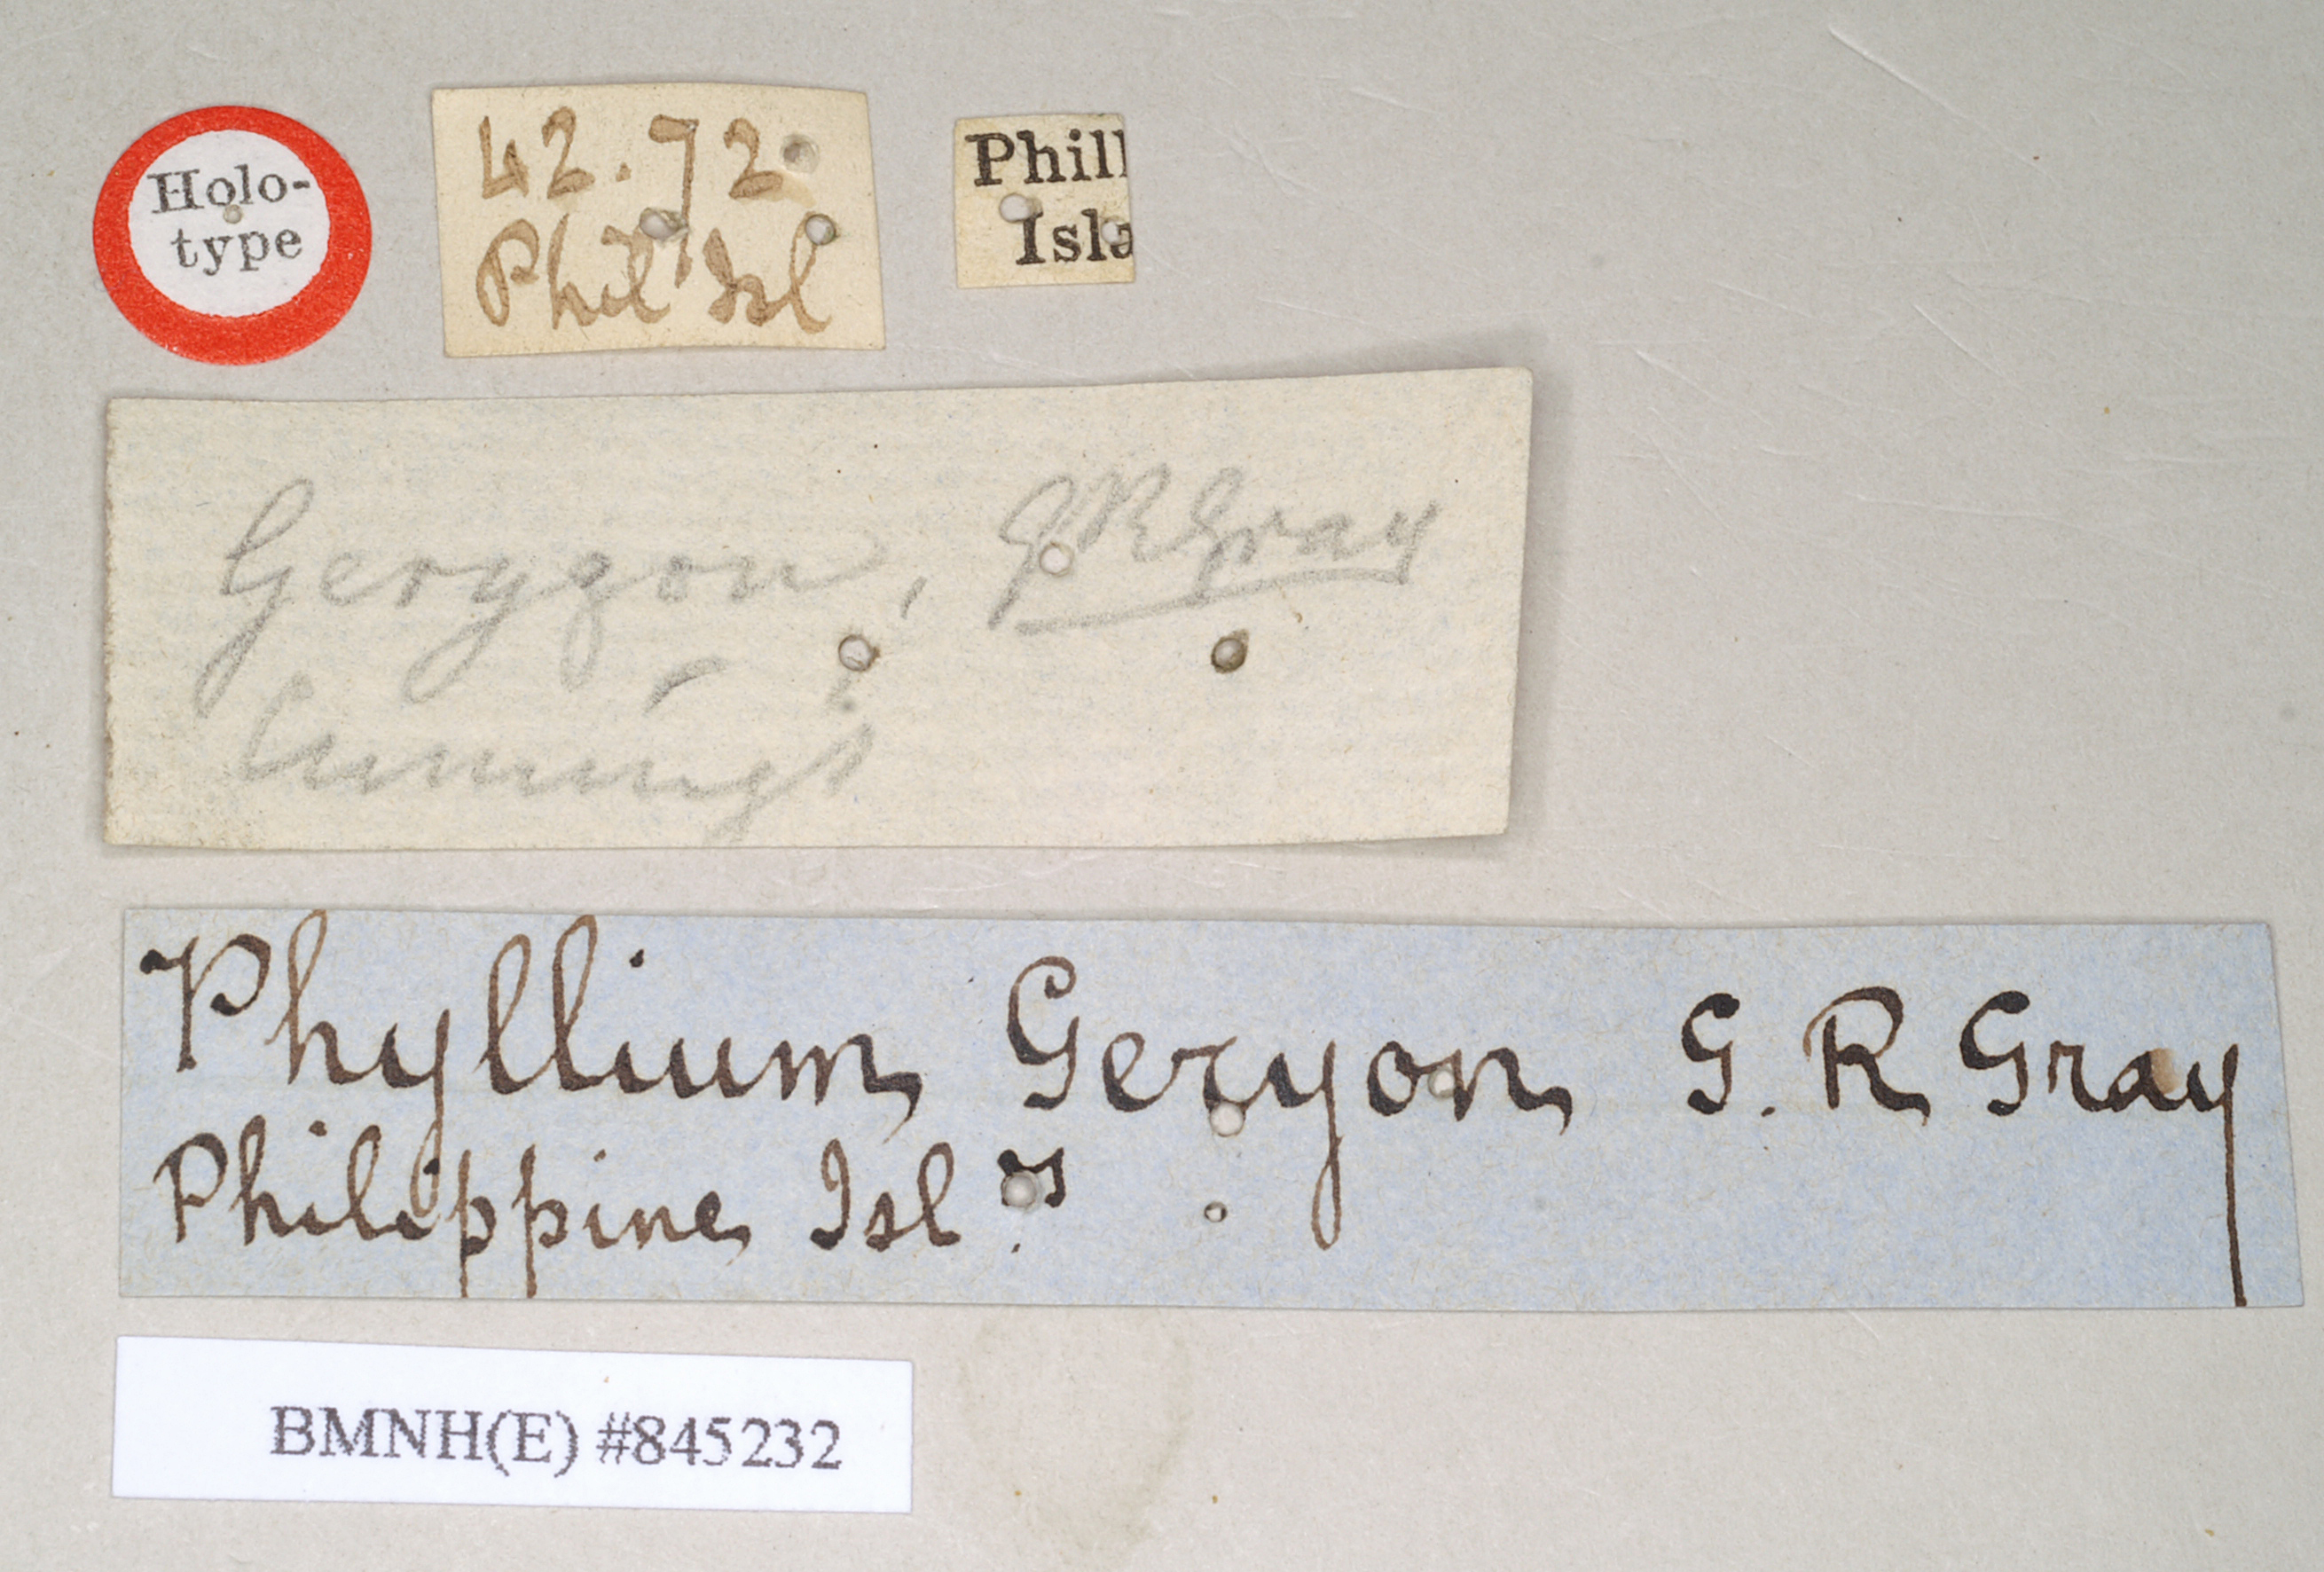 Holo-
type
42.72
Phil Isl
Phill
Isla
Gerygon, G R Gray
Phyllium Geryon G. R Gray
Philippine Isl.ds
BMNH(E) #845232